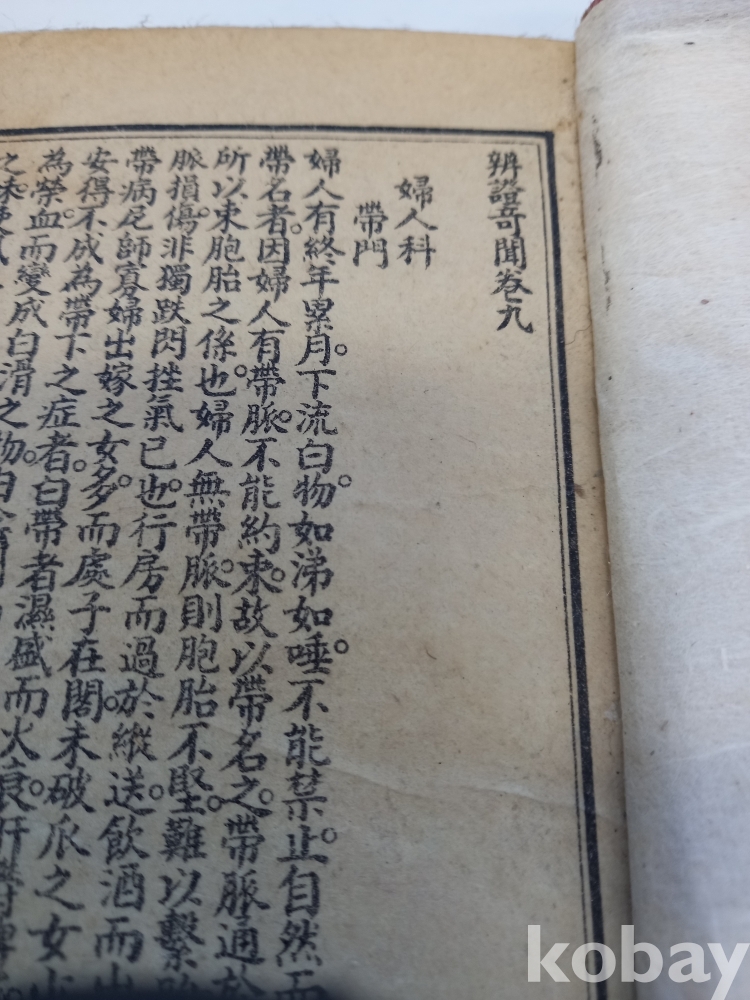 辨證奇聞卷九
婦人科
帶門
婦人有終年累月。下流白物。如涕如唾。不能禁止。自然而
帶名者。因婦人有帶脈。不能約束。故以帶名之。帶脈通於
所以束胞胎之係。也婦人無帶脈。則胞胎不堅。難以繫胎
脈損傷。非獨跌閃挫氣已也。行房而過於縱送。飲酒而出
帶病尼師寡婦出嫁之女多。而處子在閣。未破爪之女少
安得不成為帶下之症者。白帶者濕盛而火衰。肝
為榮血。而變成白滑之物。
之
kobay